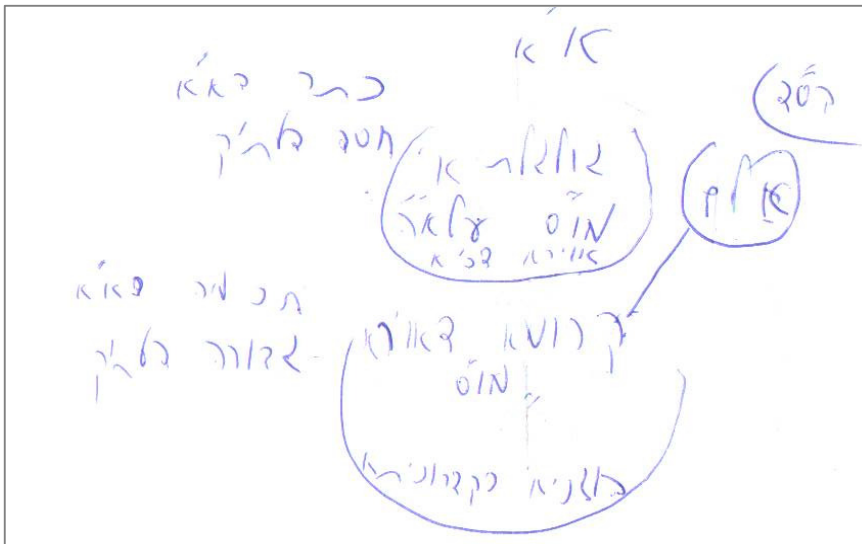 א"א
כתר דא"א
חסד דעת"ק
גולגלת א'
מו"ס עלאה
אוירא דכיא
אלם
חכמה דא"א
גבורה דעת"ק
קרומא דאוירא
מו"ס
בוצינא דקרדוניתא